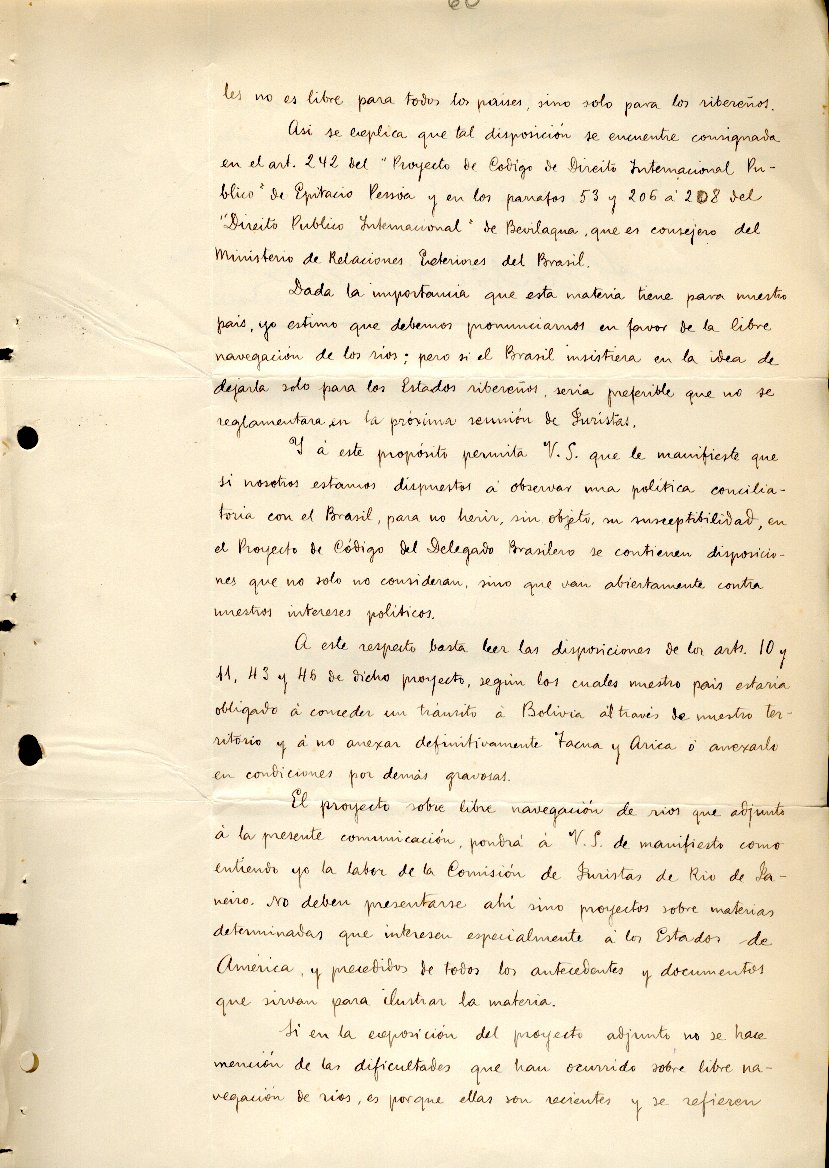 60
les no es libre para todos los países, sino solo para los ribereños.
Asi se explica que tal disposición se encuentre consignada
en el art. 242 del "Proyecto de Codigo de Direito Internacional Pu-
blico" de Epitacio Pessóa y en los parrafos 53 y 206 á 208 del
"Direito Publico Internacional" de Bevilaqua, que es consejero del
Ministerio de Relaciones Exteriores del Brasil.
Dada la importancia que esta materia tiene para nuestro
país, yo estimo que debemos pronunciarnos en favor de la libre
navegación de los ríos; pero si el Brasil insistiera en la idea de
dejarla solo para los Estados ribereños, sería preferible que no se
reglamentara en la próxima reunión de Juristas.
Y á este propósito permita V. S. que le manifieste que
si nosotros estamos dispuestos á observar una política concilia-
toria con el Brasil, para no herir, sin objeto, su susceptibilidad, en
el Proyecto de Código del Delegado Brasilero se contienen disposicio-
nes que no solo no consideran, sino que van abiertamente contra
nuestros intereses políticos.
A este respecto basta leer las disposiciones de los arts. 10 y
11, 43 y 46 de dicho proyecto, según los cuales nuestro país estaría
obligado á conceder un tránsito á Bolivia al través de nuestro ter-
ritorio y á no anexar definitivamente Tacna y Arica ó anexarlo
en condiciones por demás gravosas.
El proyecto sobre libre navegación de rios que adjunto
á la presente comunicación, pondrá á V. S. de manifiesto como
entiendo yo la labor de la Comisión de Juristas de Rio de Ja-
neiro. No deben presentarse ahí sino proyectos sobre materias
determinadas que interesen especialmente á los Estados de
América, y precedidos de todos los antecedentes y documentos
que sirvan para ilustrar la materia.
Si en la exposición del proyecto adjunto no se hace
mención de las dificultades que han ocurrido sobre libre na-
vegación de ríos, es porque ellas son recientes y se refieren